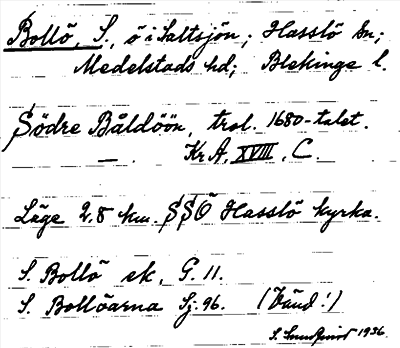 Bollö, S., ö i Saltsjön; Hasslö sn;
Medelstads hd; Blekinge l.
Södre Båldöön, trol. 1680-talet.
— . Kr A, XVIII, C.
Läge 2,8 km. SSÖ Hasslö kyrka.
S. Bollö ek, G. 11.
S. Bollöarna Sj. 96. (Vänd!)
S. Sundquist 1936.